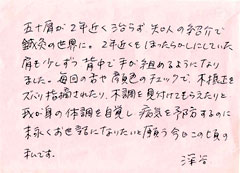 五十肩が2年近く治らず知人の紹介で
鍼灸の世界に。2年近くもほったらかしにしていた
肩も少しずつ背中で手が組めるようになり
ました。毎回の舌や顔色のチェックで、不摂生を
ズバリ指摘されたり、不調を見付けてもらえたりと
我が身の体調を自覚し病気を予防するのに
末永くお世話になりたいと願う今日この頃の
私です。
深谷